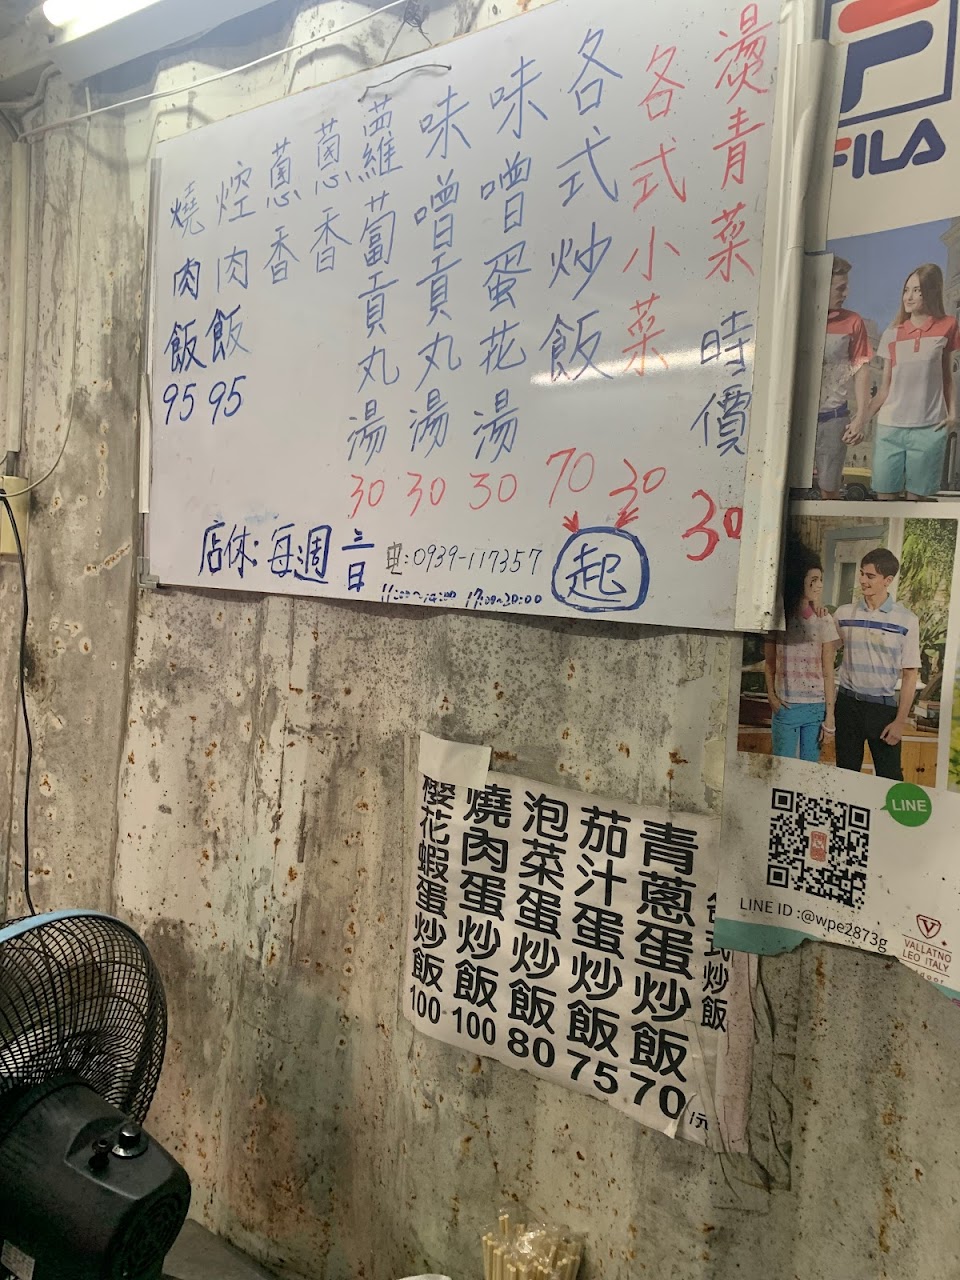 燙青菜 時價 30
各式小菜 30
各式炒飯 70
起
味噌蛋花湯 30
味噌貢丸湯 30
蘿蔔貢丸湯 30
茴香
蔥香
焢肉飯 95
燒肉飯 95
店休:每週三日
电:0939-117357
11:00~14:00 17:00~20:00
各式炒飯
青蔥蛋炒飯 70元
茄汁蛋炒飯 75
泡菜蛋炒飯 80
燒肉蛋炒飯 100
櫻花蝦蛋炒飯 100
FILA
LINE
LINE ID :@wpe2873g
VALLATNO
LEO ITALY